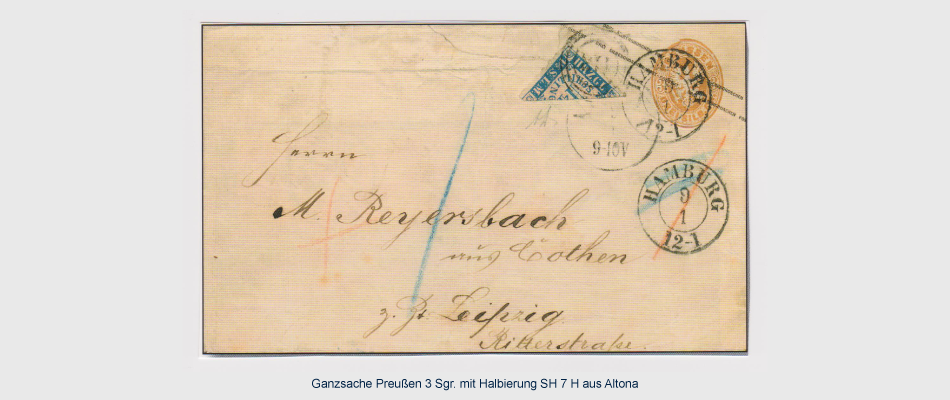 HAMBURG
9
1
12-1
9-10V
HAMBURG
9
1
12-1
Herrn
M. Reyersbach
aus Cöthen
z. Zt. Leipzig.
Ritterstraße.
Ganzsache Preußen 3 Sgr. mit Halbierung SH 7 H aus Altona